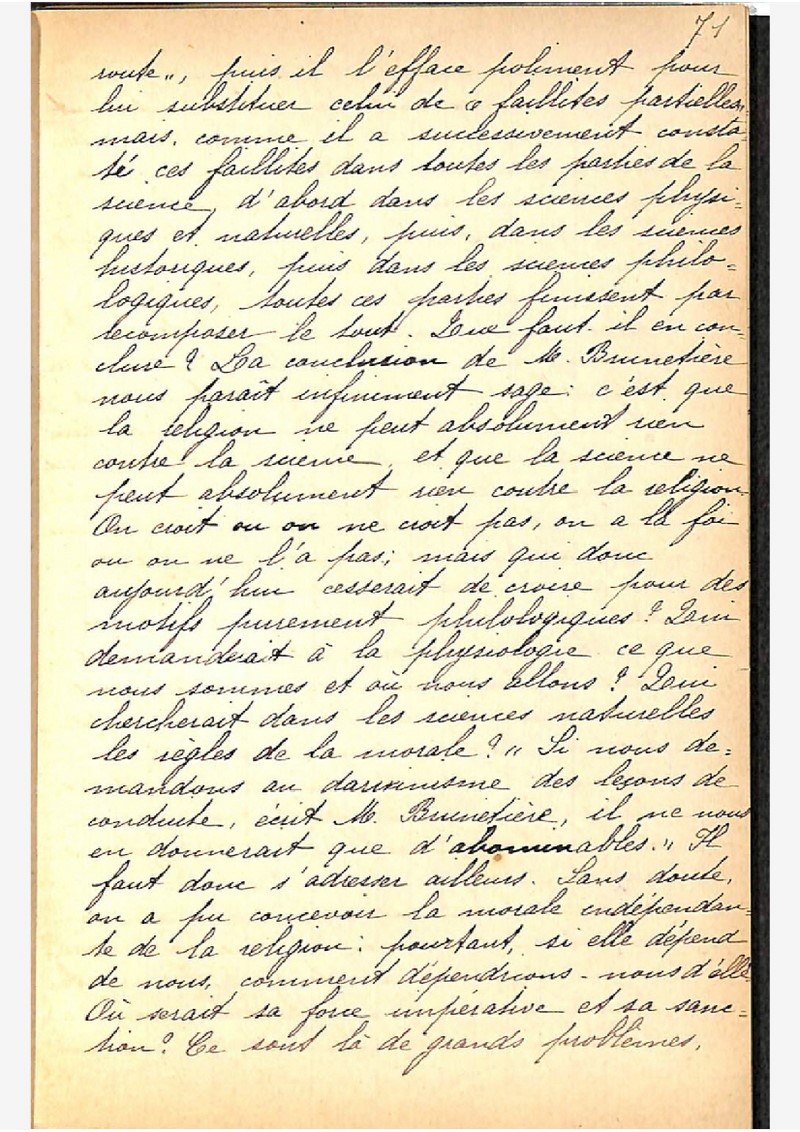 71
route", puis, il l'efface poliment pour
lui substituer celui de « faillites partielles,
mais, comme il a successivement consta-
té ces faillites dans toutes les parties de la
science, d'abord dans les sciences physi=
ques et naturelles, puis, dans les sciences
historiques, puis dans les sciences philo=
logiques, toutes ces parties finissent par
recomposer le tout. Que faut-il en con-
clure ? La conclusion de M. Brunetière
nous paraît infiniment sage : c'est que
la religion ne peut absolument rien
contre la science, et que la science ne
peut absolument rien contre la religion.
On croit ou on ne croit pas, on a la foi
ou on ne l'a pas ; mais qui donc
aujourd'hui cesserait de croire pour des
motifs purement philologiques ? Qui
demanderait à la physiologie ce que
nous sommes et où nous allons ? Qui
chercherait dans les sciences naturelles
les règles de la morale ? " Si nous de=
mandons au darwinisme des leçons de
conduite, écrit M. Brunetière, il ne nous
en donnerait que d'abominables. " Il
faut donc s'adresser ailleurs. Sans doute,
on a pu concevoir la morale indépendan=
te de la religion : pourtant, si elle dépend
de nous, comment dépendrions-nous d'elle
Où serait sa force impérative et sa sanc=
tion ? Ce sont là de grands problèmes,